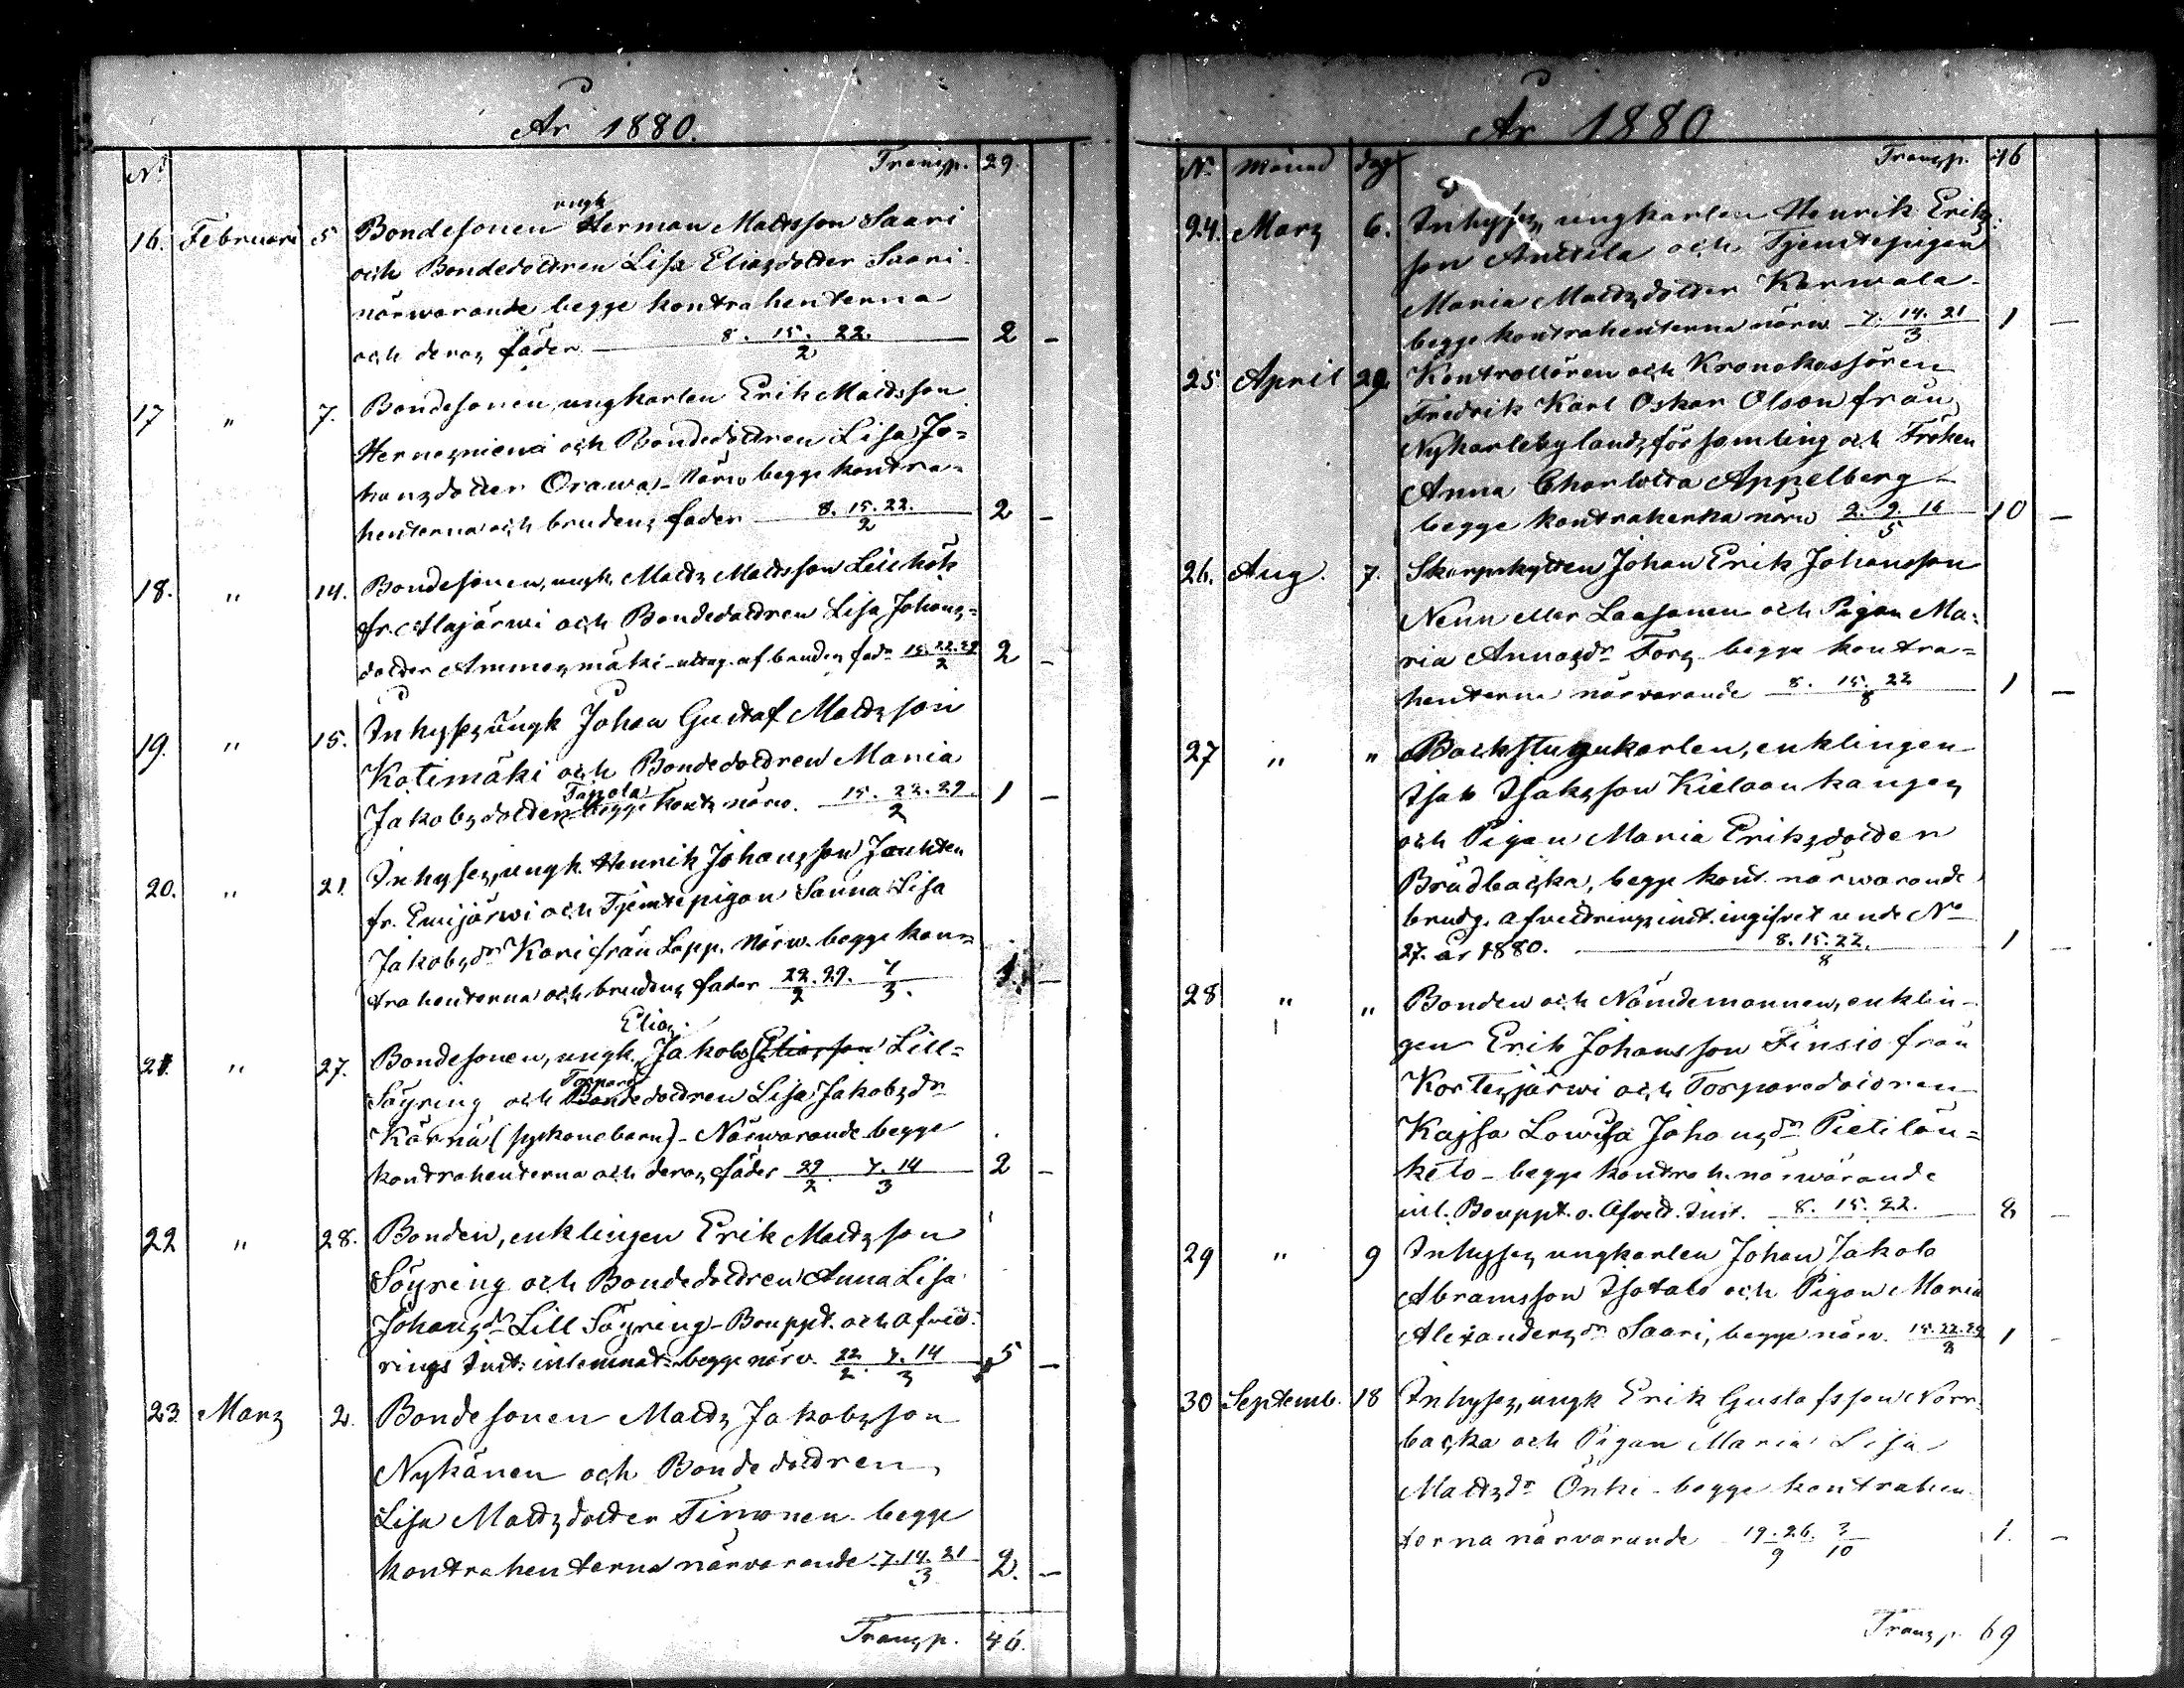 År 1880.
No Transp. 29.
ungk
16. Februari 5 Bondesonen Herman Mattsson Saari
och Bondedottren Lisa Eliasdotter Saari
närwarande begge kontrahenterna
och deras fäder 8. 15. 22. / 2 2 –
17 " 7. Bondesonen, ungkarlen Erik Mattsson
Hernesniemi och Bondedottren Lisa Jo=
hansdotter Orawa, Närw begge kontra=
henterna och brudens fader 8. 15. 22. / 2 2 –
18. " 14. Bondesonen, ungk. Matts Mattsson
fr. Alajärwi och Bondedottren Lisa Johans=
dotter Ammesmäki uttag. af brudens fadr 15. 22. 29 / 2 2 –
19. " 15. Inhyses ungk Johan Gustaf Mattsson
Kotimäki och Bondedottren Maria
Tapola
Jakobsdotter begge kontr närw. 15. 22. 29 / 2 1 –
20. " 21. Inhyses, ungk. Henrik Johansson
fr. Ewijärwi och Tjenstepigan Sanna Lisa
Jakobsdr Kari från Lapp. Närw. begge kon=
trahenterna och brudens fader 22. 29. / 2 7 / 3. 1. –
Elias.
21. " 27. Bondesonen, ungk. Jakob Eliasson Lill=
Torpare
Söyring och Bondedottren Lisa Jakobsdr
Kärnä (syskonebarn) - Närwarande begge
kontrahenterna och deras fäder 29 / 2 7. 14 / 3 2 –
22 " 28. Bonden, enklingen Erik Mattsson
Söyring och Bondedottren Anna Lisa
Johansdr Lill Söyring - Bouppt. och afvitt-
rings Inst: inlemnat: begge närv. 22 / 2. 7. 14 / 3 5 –
23. Mars 2. Bondesonen Matts Jakobsson
Nykänen och Bondedottren
Lisa Mattsdotter Timonen begge
kontrahenterna närvarande 7. 14. 21 / 3 2. –
Transp. 46.
År 1880
No Månad dag Transp. 46
24. Mars 6. Inhyses, ungkarlen Henrik Eriks=
son Anttila och Tjenstepigan
Maria Mattsdotter Karwala
begge kontrahenterna närw. 7. 14. 21 / 3 1 –
25 April 29. Kontrollören och Kronokassören
Fredrik Karl Oskar Olson från
Nykarleby landsförsamling och Fröken
Anna Charlotta Appelberg –
begge kontraherna närw 2. 9. 16 / 5 10 –
26. Aug. 7. Skarpskytten Johan Erik Johansson
Nenn eller Laasonen och Pigan Ma=
ria Annasdr Fors begge kontra=
henterna närvarande 8. 15. 22 / 8 1 –
27 " " Backstugukarlen, enklingen
Isak Isaksson Kielaankangas
och Pigan Maria Eriksdotter
Brädbacka, begge kont. närwarande
brudg. afvittrings inst. ingifvet unde No
27. år 1880. 8. 15. 22. / 8 1 –
28 " " Bonden och Nämdemannen, enklin-
gen Erik Johansson Finsio från
Kortesjärwi och Torparedottren
Kajsa Lowisa Johansdr Pietilän=
keto - begge kontrah. närwarande
inl. Bouppt. o. Afvitt. Inst. 8. 15. 22. 8 –
29 " 9 Inhyses ungkarlen Johan Jakob
Abramsson Isotalo och Pigan Maria
Alexandersdr Saari, begge närv. 15. 22. 29 / 8 1 –
30 Septemb. 18 Inhyses, ungk Erik Gustafsson Norr
backa och Pigan Maria Lisa
Mattsdr Önki - begge kontrahen
terna närvarande 19. 26. / 9 3 / 10 1. –
Transp. 69